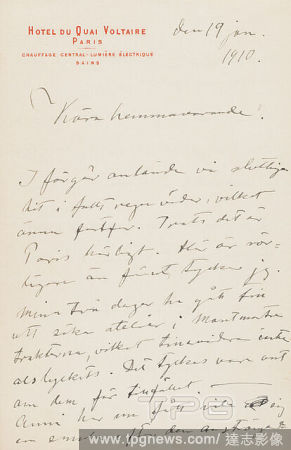 HOTEL DU QUAI VOLTAIRE
PARIS
CHAUFFAGE CENTRAL-LUMIÈRE ÉLECTRIQUE
BAINS
den 19 jan.
1910.
Kära hemmavarande!
I förgår anlände vi
hit i fullt regnväder, vilket
ännu Trots det är
Paris härligt. Här är
än förut tycker jag.
Mina två dagar ha gått
att söka atelier i Montmartre
trakterna, vilket inte
alls lyckats. Det tyckes vara ont
om dem för tillfället.
har
en
TPG
www.tpgnews.com / 達志影像